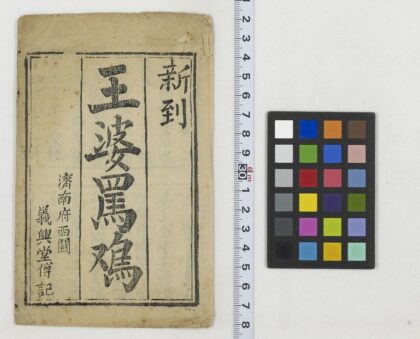 新到
王婆罵鳮
濟南府西關
義興堂傅記
2
1
2
3
4
5
6
7
8
9
30
dm
1
2
3
4
5
6
7
8